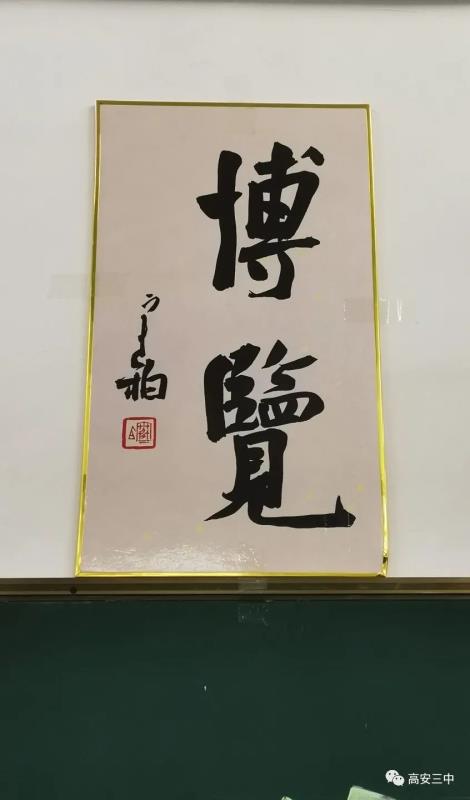 博覽
高安三中